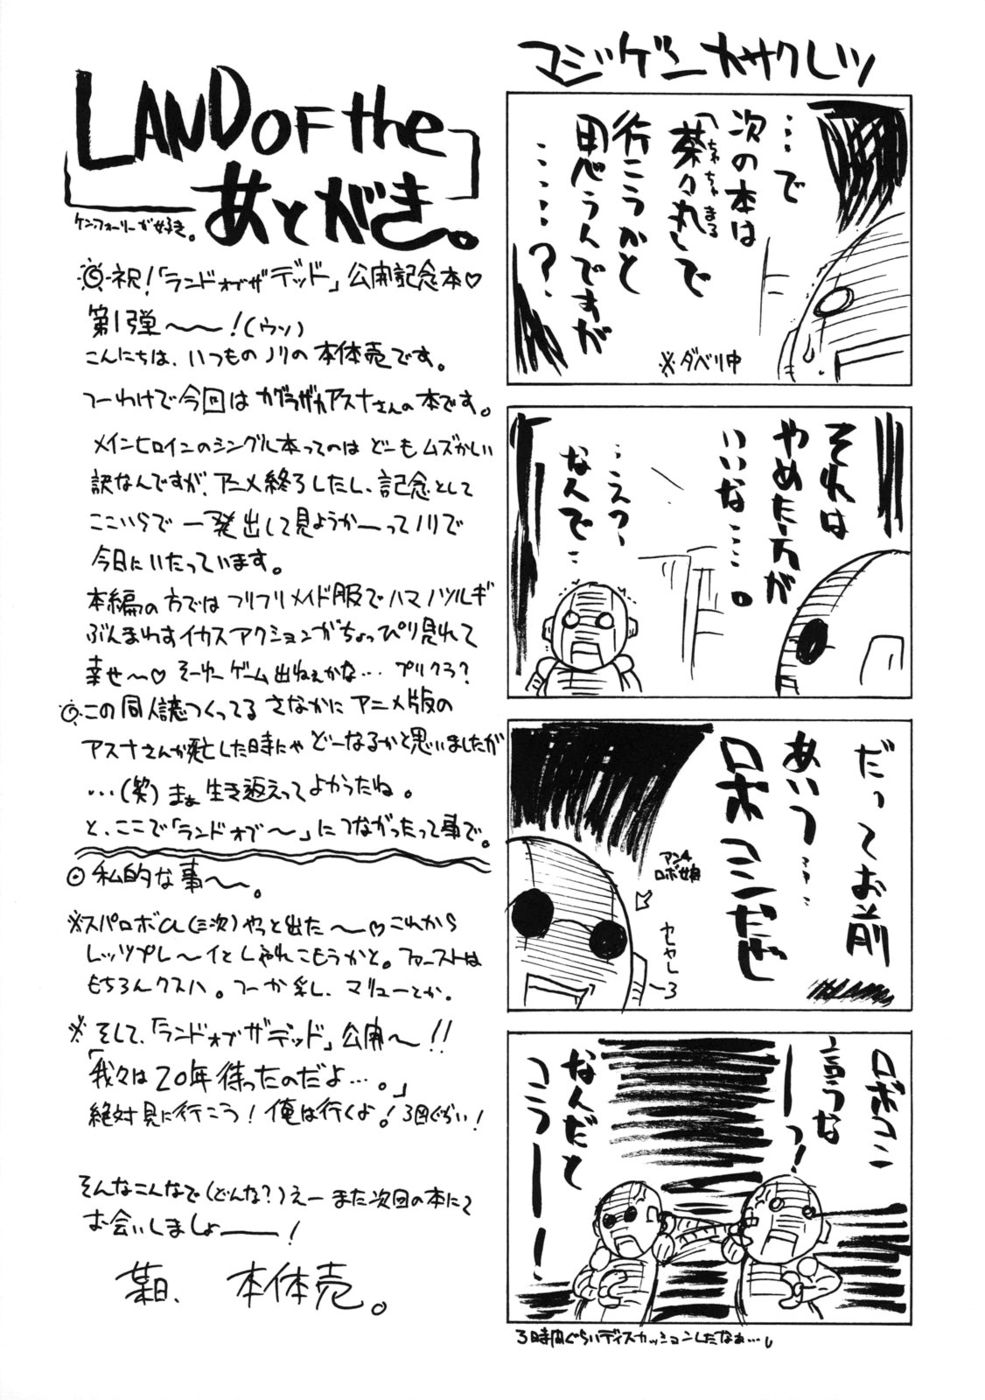 LAND OF the
あとがき。
ケン・フォーリーが好き。
◎祝!「ランドオブザデッド」公開記念本♡
第1弾〜〜!(ウソ)
こんにちは、いつものノリの本体売です。
つーわけで今回はカグラザカアスナさんの本です。
メインヒロインのシングル本ってのは どーもムズかしい
訳なんですが、アニメ終了したし、記念として
ここいらで一発出して見ようかーってノリで
今日にいたっています。
本編の方ではフリフリメイド服でハマノツルギ
ぶんまわすイカスアクションがちょっぴり見れて
幸せ〜♡ そーいやゲーム出ねぇかな… プリクラ?
◎この同人誌つくってるさなかに アニメ版の
アスナさんが死亡した時にゃ どーなるかと思いましたが
…(笑)まぁ生き返えってよかったね。
と、ここで「ランドオブ〜」につながったって事で。
◎私的な事〜〜。
※スパロボα(三次)やっと出た〜♡これから
レッツプレ〜イと しゃれこもうかと。ファーストは
もちろんクスハ。つーか乳し、マリューとか。
※そして、「ランドオブザデッド」公開〜!!
「我々は20年待ったのだよ…。」
絶対見に行こう!俺は行くよ!3回ぐらい!
そんなこんなで(どんな?)えー また次回の本にて
お会いしましょーーー!
某日、 本体売。
マジゲンカサクレツ
…で
次の本は
「茶々丸」で
ちゃちゃまる
行こうかと
思うんですが
……?
※ダベリ中
それは
やめた方が
いいな……。
…えっ、
なんで…
だってお前
あいつ……
ロボコンだぞ
アンチ
ロボ娘
ロボコン
言うな
ーーっ!
なんだと
コラーー!
3時間ぐらいディスカッションしたなぁ…。